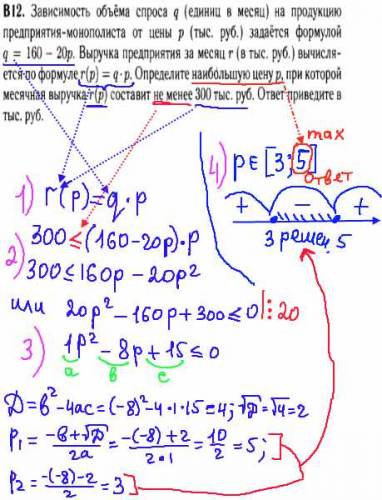 В12. Зависимость объёма спроса q (единиц в месяц) на продукцию
предприятия-монополиста от цены p (тыс. руб.) задаётся формулой
q = 160 − 20p. Выручка предприятия за месяц r (в тыс. руб.) вычисля-
ется по формуле r(p) = q · p. Определите наибольшую цену p, при которой
месячная выручка r(p) составит не менее 300 тыс. руб. Ответ приведите в
тыс. руб.
max
4) p∈[3;5]
ответ
+ − +
3 решен. 5
1) r(p)=q·p
2) 300≤(160-20p)·p
300≤160p-20p²
или 20p²-160p+300≤0 |:20
3) 1p²-8p+15≤0
a b c
D=b²-4ac=(-8)²-4·1·15=4; √D=√4=2
p₁=(-b+√D)/2a=(-(-8)+2)/2·1=10/2=5;
p₂=(-(-8)-2)/2=3